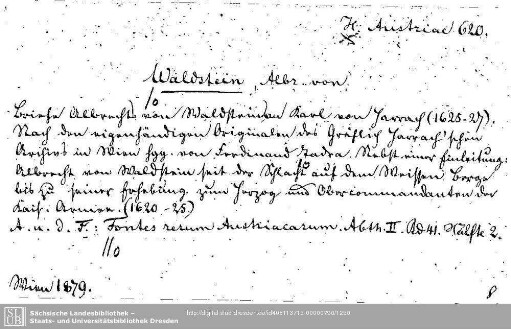 H. Austriac 620.
Waldstein, Albr. von
Briefe Albrechts von Waldstein an Karl von Harrach (1625-27).
Nach den eigenhändigen Originalen des Gräflich Harrach'schen
Archivs in Wien hgg. von Ferdinand Tadra. Nebst einer Einleitung:
Albrecht von Waldstein seit der Schlacht auf dem Weissen Berge
bis zu seiner Erhebung zum Herzog und Obercommandanten der
Kais. Armee. (1620-25)
A. u. d. T.: Fontes rerum Austriacarum. Abth. II. Bd 41. Hälfte 2.
Wien 1879. 8
SLUB
Sächsische Landesbibliothek –
Staats- und Universitätsbibliothek Dresden